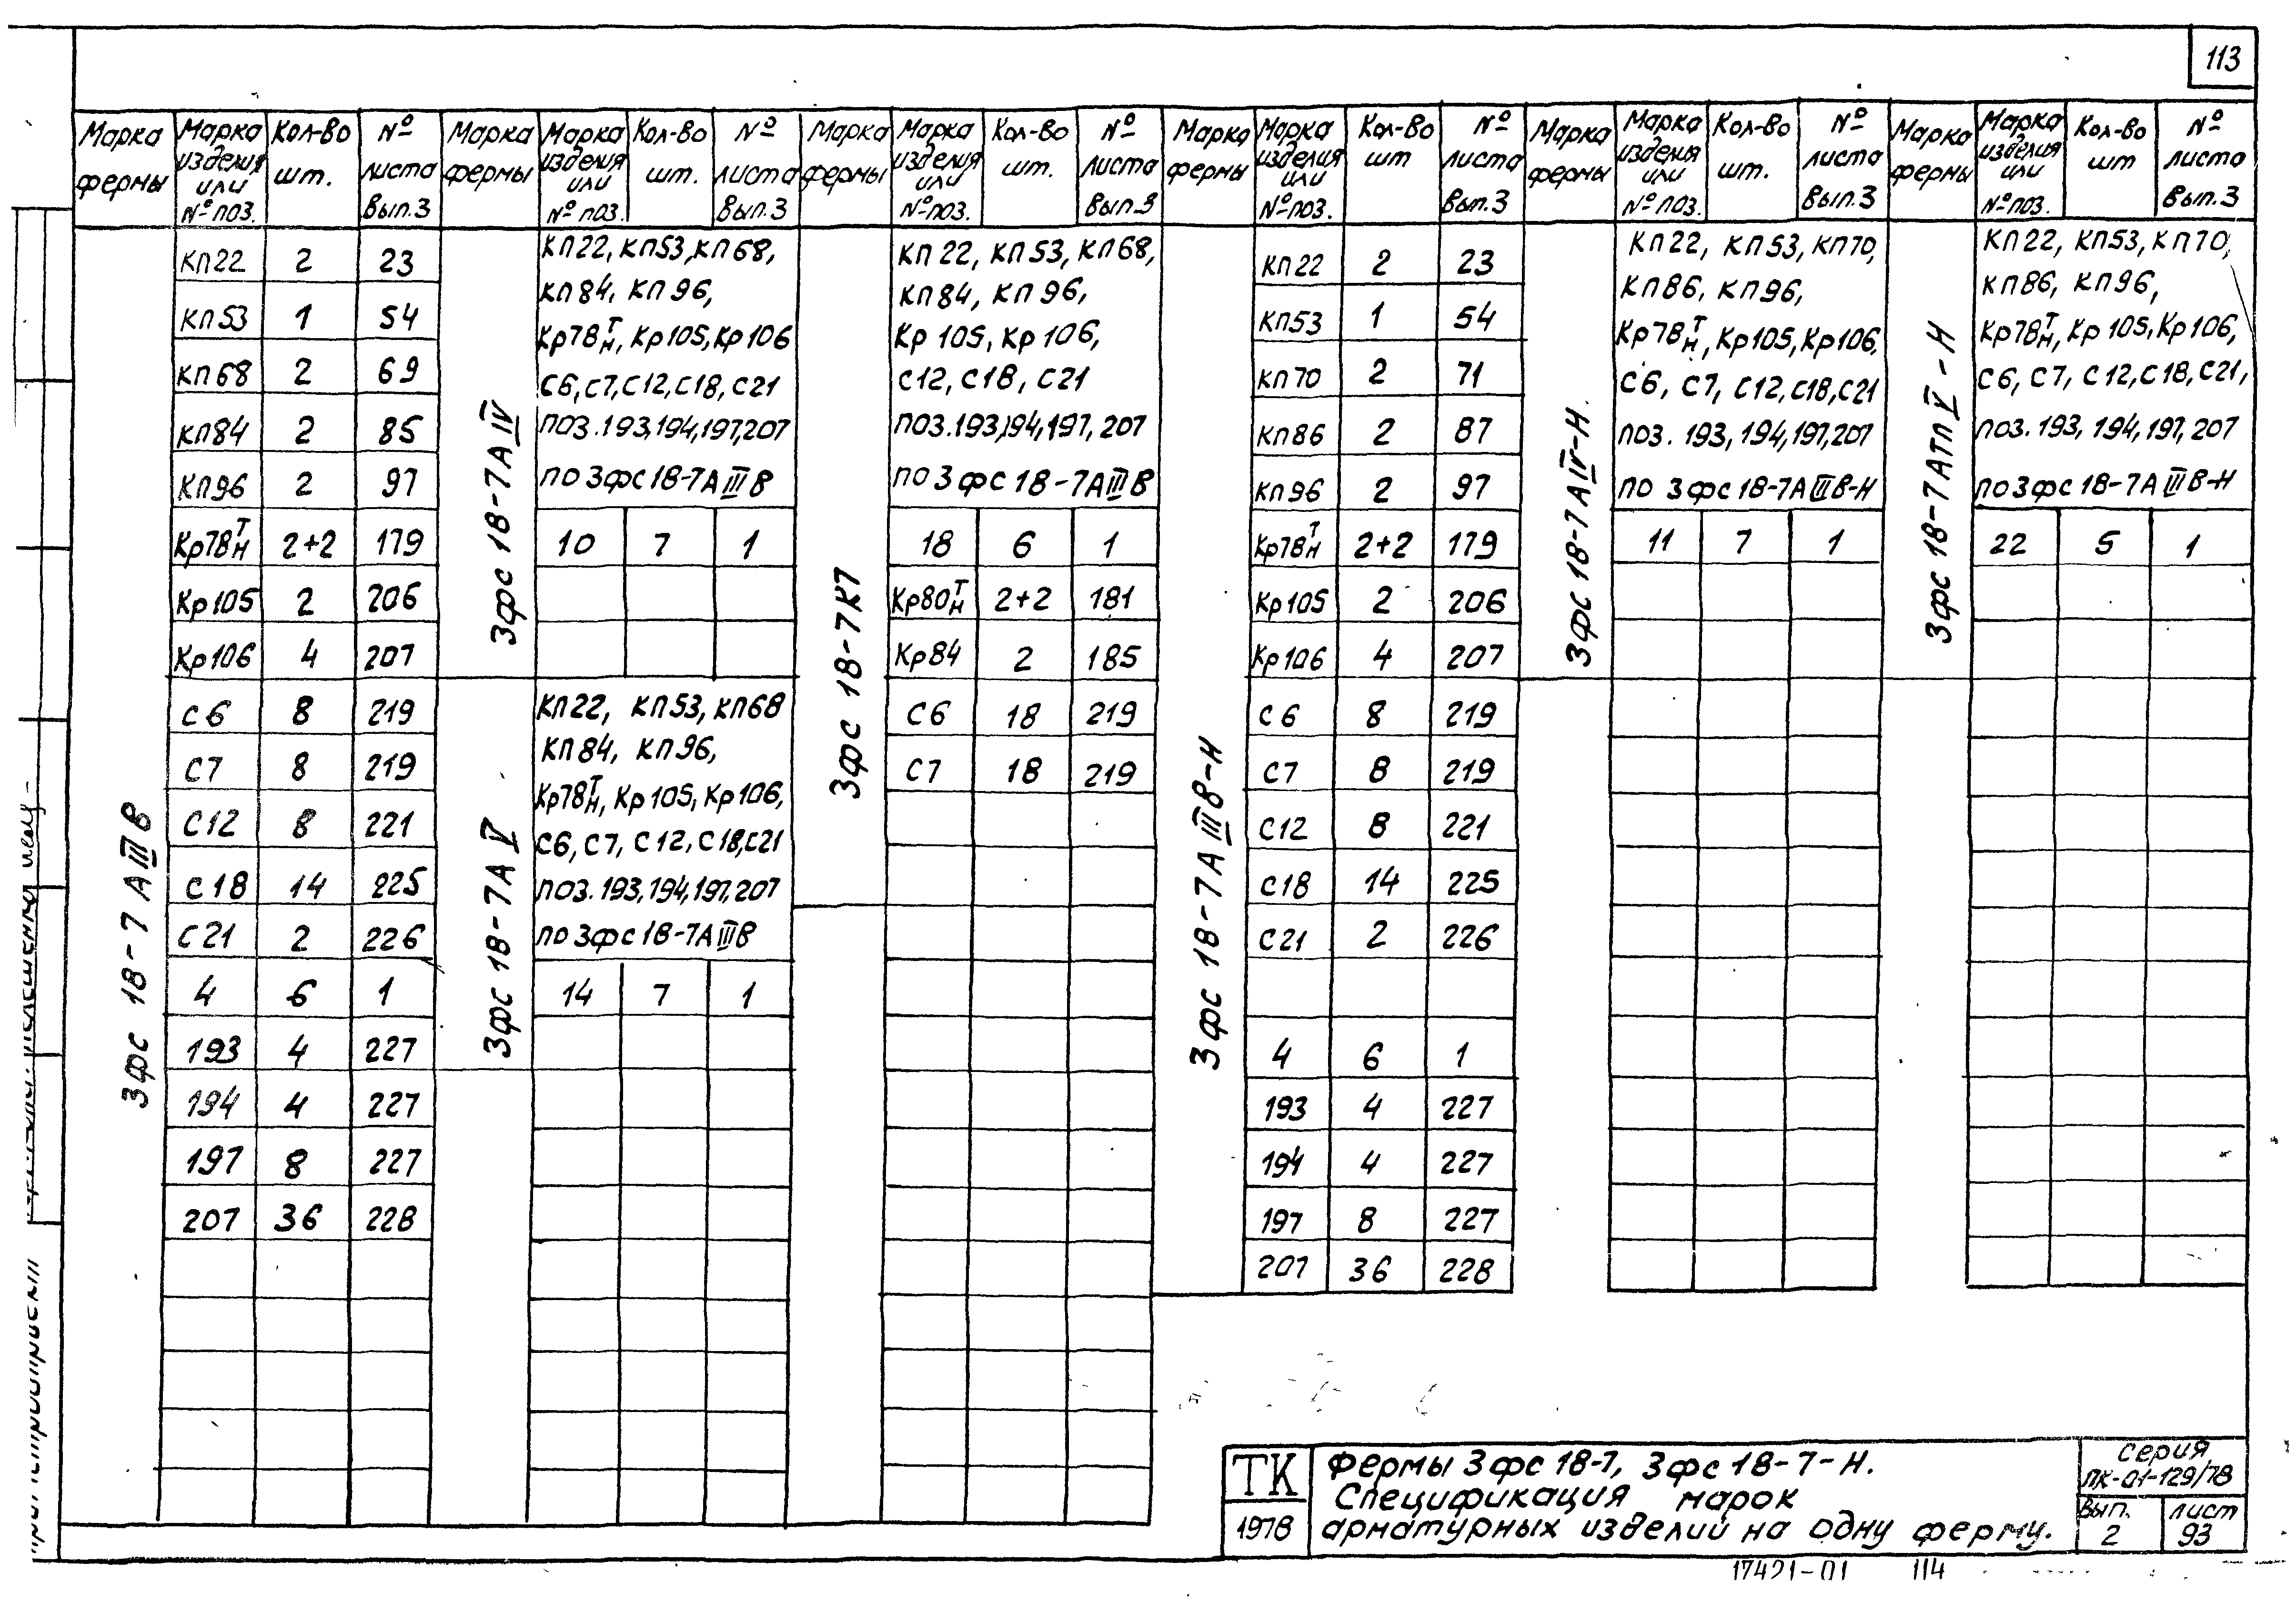 113
Марка фермы | Марка изделия или № поз. | Кол-во шт. | № листа Вып.3 | Марка фермы | Марка изделия или № поз. | Кол-во шт. | № листа Вып.3 | Марка фермы | Марка изделия или № поз. | Кол-во шт. | № листа Вып.3 | Марка фермы | Марка изделия или № поз. | Кол-во шт | № листа Вып.3 | Марка фермы | Марка изделия или № поз. | Кол-во шт. | № листа Вып.3 | Марка фермы | Марка изделия или № поз. | Кол-во шт | № листа Вып.3
3фс 18-7 АIIIВ
КП22 2 23
КП53 1 54
КП68 2 69
КП84 2 85
КП96 2 97
Кр78Тн 2+2 179
Кр105 2 206
Кр106 4 207
С6 8 219
С7 8 219
С12 8 221
С18 14 225
С21 2 226
4 6 1
193 4 227
194 4 227
197 8 227
207 36 228
3фс 18-7АIV
КП22, КП53, КП68,
КП84, КП96,
Кр78Тн, Кр105, Кр106
С6, С7, С12, С18, С21
поз.193,194,197,207
по 3фс18-7АIIIВ
10 7 1
3фс 18-7АV
КП22, КП53, КП68
КП84, КП96,
Кр78Тн, Кр105, Кр106,
С6, С7, С12, С18, С21
поз. 193,194,197,207
по 3фс18-7АIIIВ
14 7 1
3фс 18-7К7
КП22, КП53, КП68,
КП84, КП96,
Кр105, Кр106,
С12, С18, С21
поз.193,194,197,207
по 3фс 18-7АIIIВ
18 6 1
Кр80Тн 2+2 181
Кр84 2 185
С6 18 219
С7 18 219
3фс 18-7АIIIВ-Н
КП22 2 23
КП53 1 54
КП70 2 71
КП86 2 87
КП96 2 97
Кр78Тн 2+2 179
Кр105 2 206
Кр106 4 207
С6 8 219
С7 8 219
С12 8 221
С18 14 225
С21 2 226
4 6 1
193 4 227
194 4 227
197 8 227
207 36 228
3фс 18-7АIV-Н.
КП22, КП53, КП70,
КП86, КП96,
Кр78Тн, Кр105, Кр106,
С6, С7, С12, С18, С21
поз. 193, 194, 197, 207
по 3фс18-7АIIIВ-Н
11 7 1
3фс 18-7АтпV-Н
КП22, КП53, КП70,
КП86, КП96,
Кр78Тн, Кр105, Кр106,
С6, С7, С12, С18, С21,
поз. 193, 194, 197, 207
по 3фс 18-7АIIIВ-Н
22 5 1
ТК
1978
Фермы 3фс18-7, 3фс18-7-Н.
Спецификация марок
арматурных изделий на одну ферму.
серия
ПК-01-129/78
Вып. 2
лист 93
17421-01 114